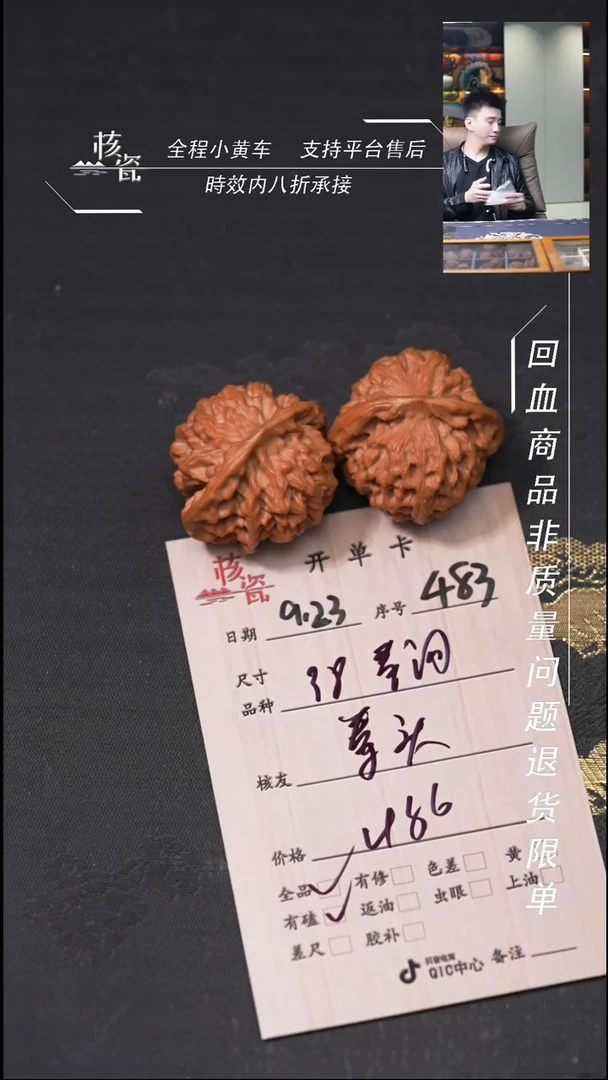 核瓷
全程小黄车 支持平台售后
時效内八折承接
回血商品非质量问题退货限单
核瓷
开单卡
日期 9.23 序号 483
尺寸
品种
核友
价格 486
全品 有修 色差 黄
有磕 返油 虫眼 上油
差尺 胶补
抖音电商
QIC中心 备注